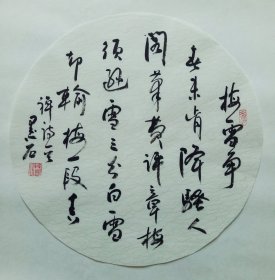 梅雪争
春未肯降骚人
阁笔费评章梅
须逊雪三分白雪
却输梅一段香
墨石